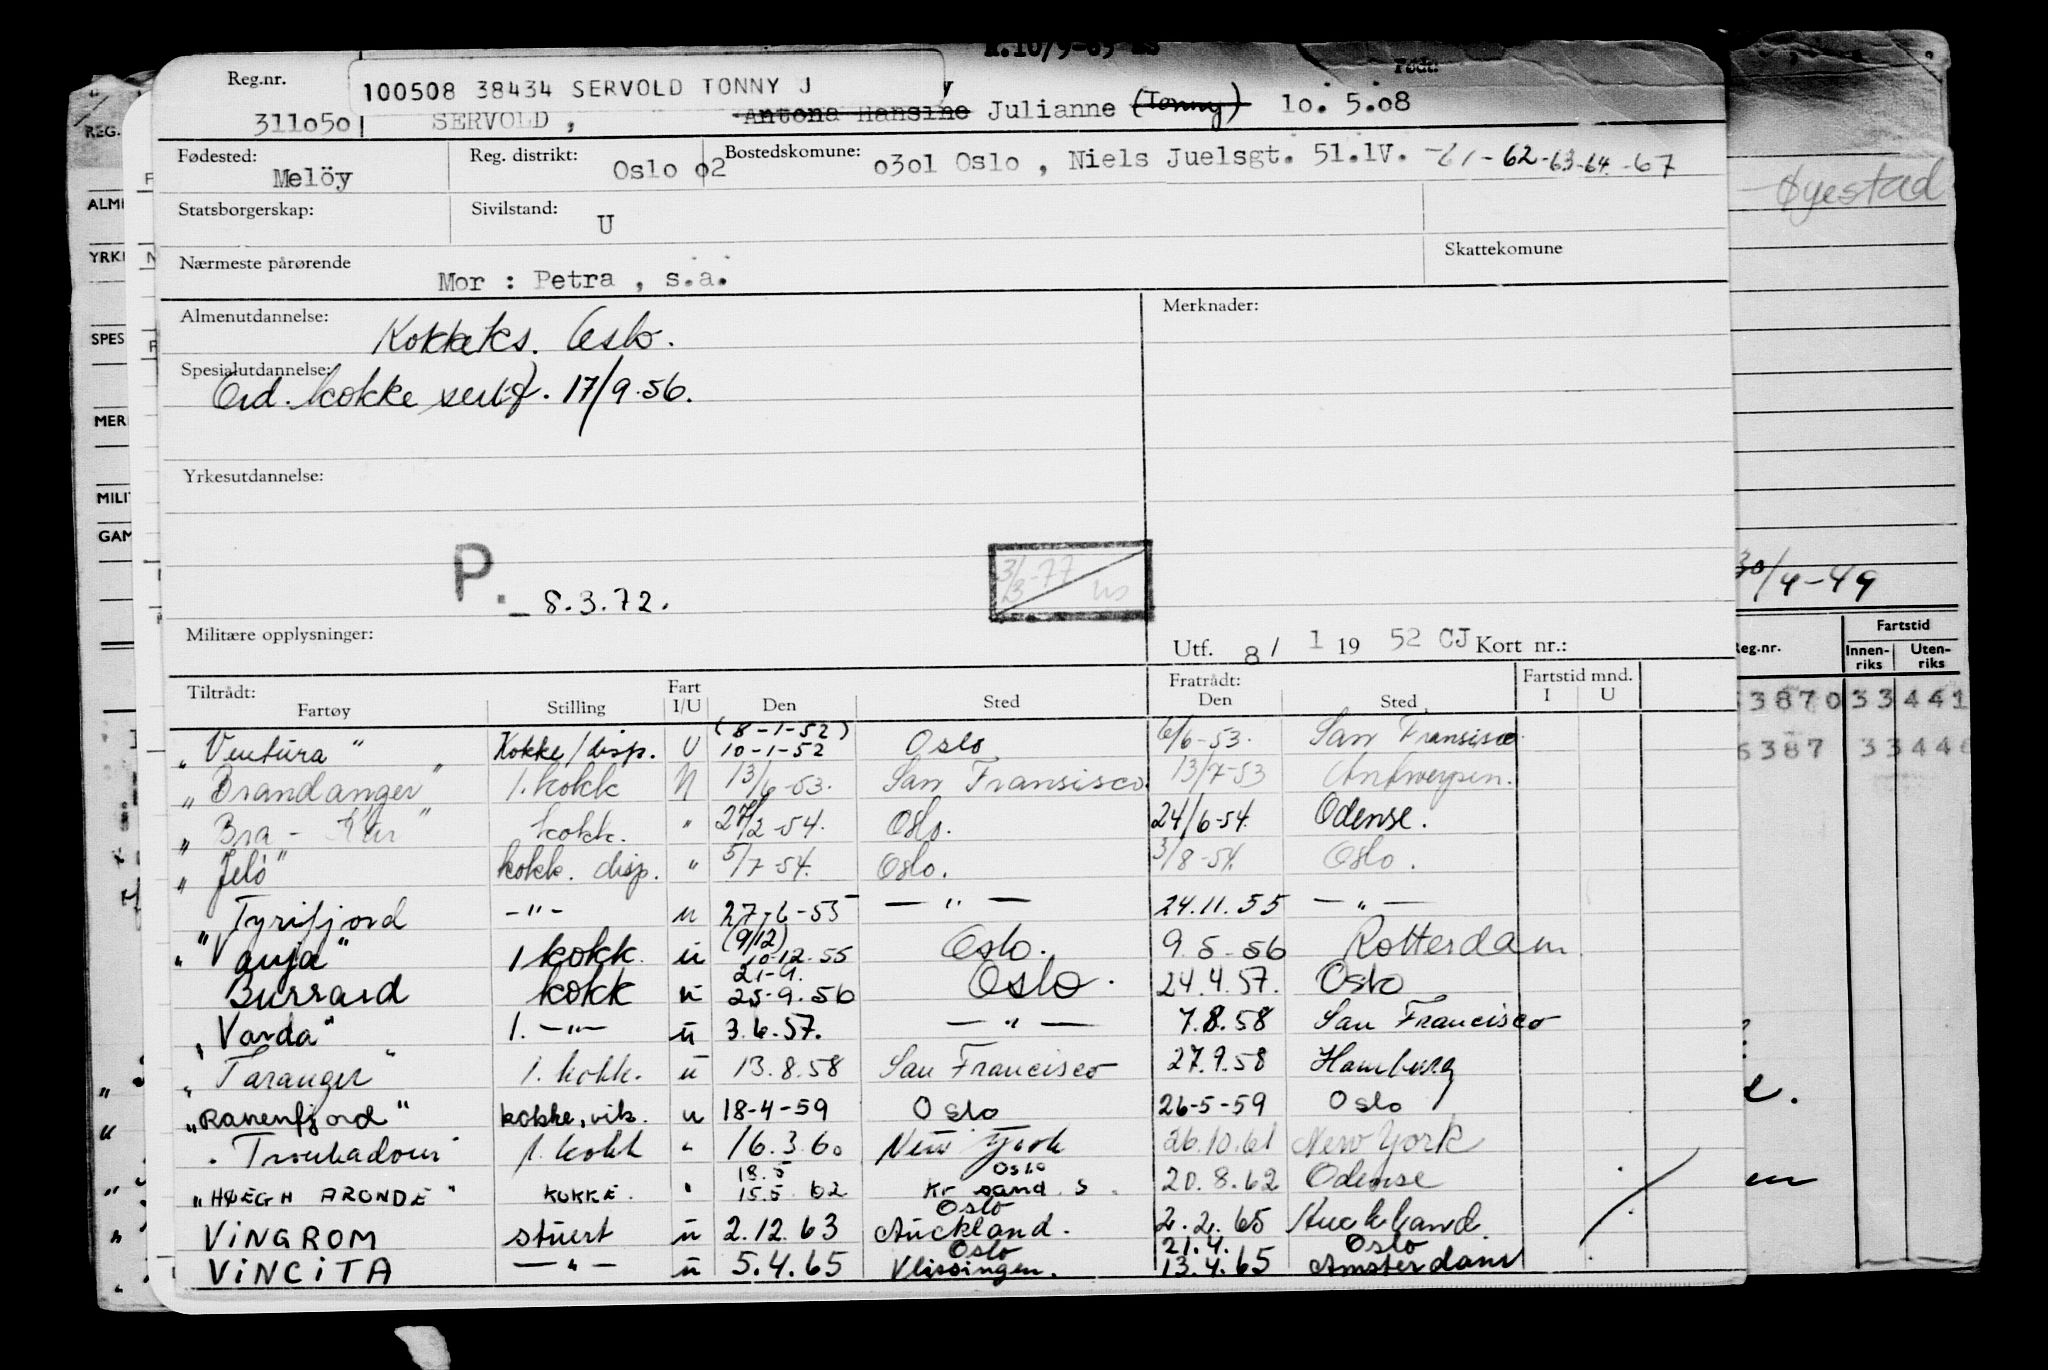 Reg.nr. 100508 38434 SERVOLD TONNY J Født:
311o5o SERVOLD, Antona Hansine Julianne (Tonny) 1o. 5.o8
Fødested: Melöy Reg. distrikt: Oslo o2 Bostedskomune: o3o1 Oslo, Niels Juelsgt. 51.1V. -61-62-63-64-67
Statsborgerskap: Sivilstand: U
Skattekomune
Nærmeste pårørende Mor : Petra, s.a.
Almenutdannelse: Kokkeks. Oslo. Merknader:
Spesialutdannelse: Ord. kokke sertif. 17/9.56.
Yrkesutdannelse:
P. - 8.3.72. 3/3-77
Militære opplysninger: Utf. 8/ 1 19 52 CJ Kort nr.:
Tiltrådt: Fart Fratrådt: Fartstid mnd.
Fartøy Stilling I/U Den Sted Den Sted I U
(8-1-52)
"Ventura" Kokke/disp. U 10-1-52 Oslo 6/6-53. San Fransisco
"Brandanger" 1. kokk U 13/6-53. San Fransisco. 13/7-53 Antwerpen.
"Bra-Kar" kokk. " 27/2-54. Oslo. 24/6-54. Odense.
"Jelö" kokk. disp. " 5/7-54. Oslo. 3/8-54. Oslo.
"Tyrifjord -"- u 27-6-55 — " — 24.11.55 — " —
(9/12)
"Vanja" 1 kokk. u 10-12-55 Oslo. 9.5-56 Rotterdam
21-9.
Burrard kokk u 25-9.56 Oslo. 24.4.57. Oslo
"Varda" 1. -"- u 3.6.57. — " — 7.8.58 San Francisco
"Taranger" 1. kokk. u 13.8.58 San Francisco 27.9.58 Hamburg
"Ranenfjord" kokke, vik. u 18-4-59 Oslo 26-5-59 Oslo
"Troubadour" 1. kokk " 16.3.60 New York 26.10.61 New York
18.5 Oslo
"HØEGH ARONDE" KOKKE. " 15.5.62 Kr sand. S. 20.8.62 Odense
Oslo
VINGROM stuert u 2.12.63 Auckland. 2.2.65 Auckland.
Oslo 21.4. Oslo
VINCITA — " — u 5.4.65 Vlissingen. 13.4.65 Amsterdam
REG.
ALM
YRK
SPES
MER
MILI
GAM
Øyestad
30/4-49
Reg.nr. Fartstid
Innen-riks Uten-riks
3870 33441
6387 3344